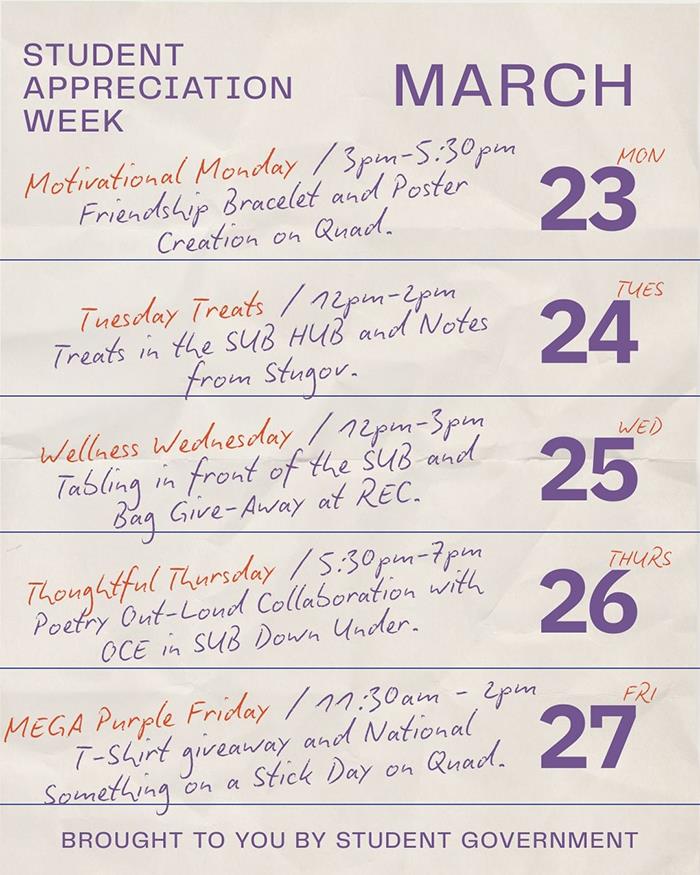 STUDENT
APPRECIATION
WEEK
MARCH
Motivational Monday / 3pm-5:30pm
Friendship Bracelet and Poster
Creation on Quad.
MON
23
Tuesday Treats / 12pm-2pm
Treats in the SUB HUB and Notes
from Stugov.
TUES
24
Wellness Wednesday / 12pm-3pm
Tabling in front of the SUB and
Bag Give-Away at REC.
WED
25
Thoughtful Thursday / 5:30pm-7pm
Poetry Out-Loud Collaboration with
OCE in SUB Down Under.
THURS
26
MEGA Purple Friday / 11:30am - 2pm
T-Shirt giveaway and National
Something on a Stick Day on Quad.
FRI
27
BROUGHT TO YOU BY STUDENT GOVERNMENT